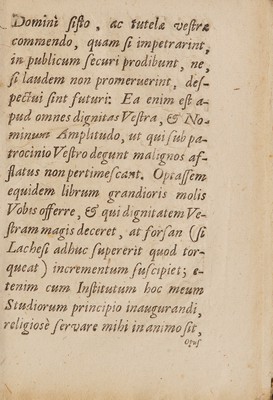 Domini sisto, ac tutelæ vestræ
commendo, quam si impetrarint,
in publicum securi prodibunt, ne,
si laudem non promeruerint, des-
pectui sint futuri: Ea enim est a-
pud omnes dignitas Vestra, & No-
minum Amplitudo, ut qui sub pa-
trocinio Vestro degunt malignos af-
flatus non pertimescant. Optassem
equidem librum grandioris molis
Vobis offerre, & qui dignitatem Ve-
stram magis deceret, at forsan (si
Lachesi adhuc supererit quod tor-
queat) incrementum suscipiet; e-
tenim cum Institutum hoc meum
Studiorum principio inaugurandi,
religiosè servare mihi in animo sit,
opus